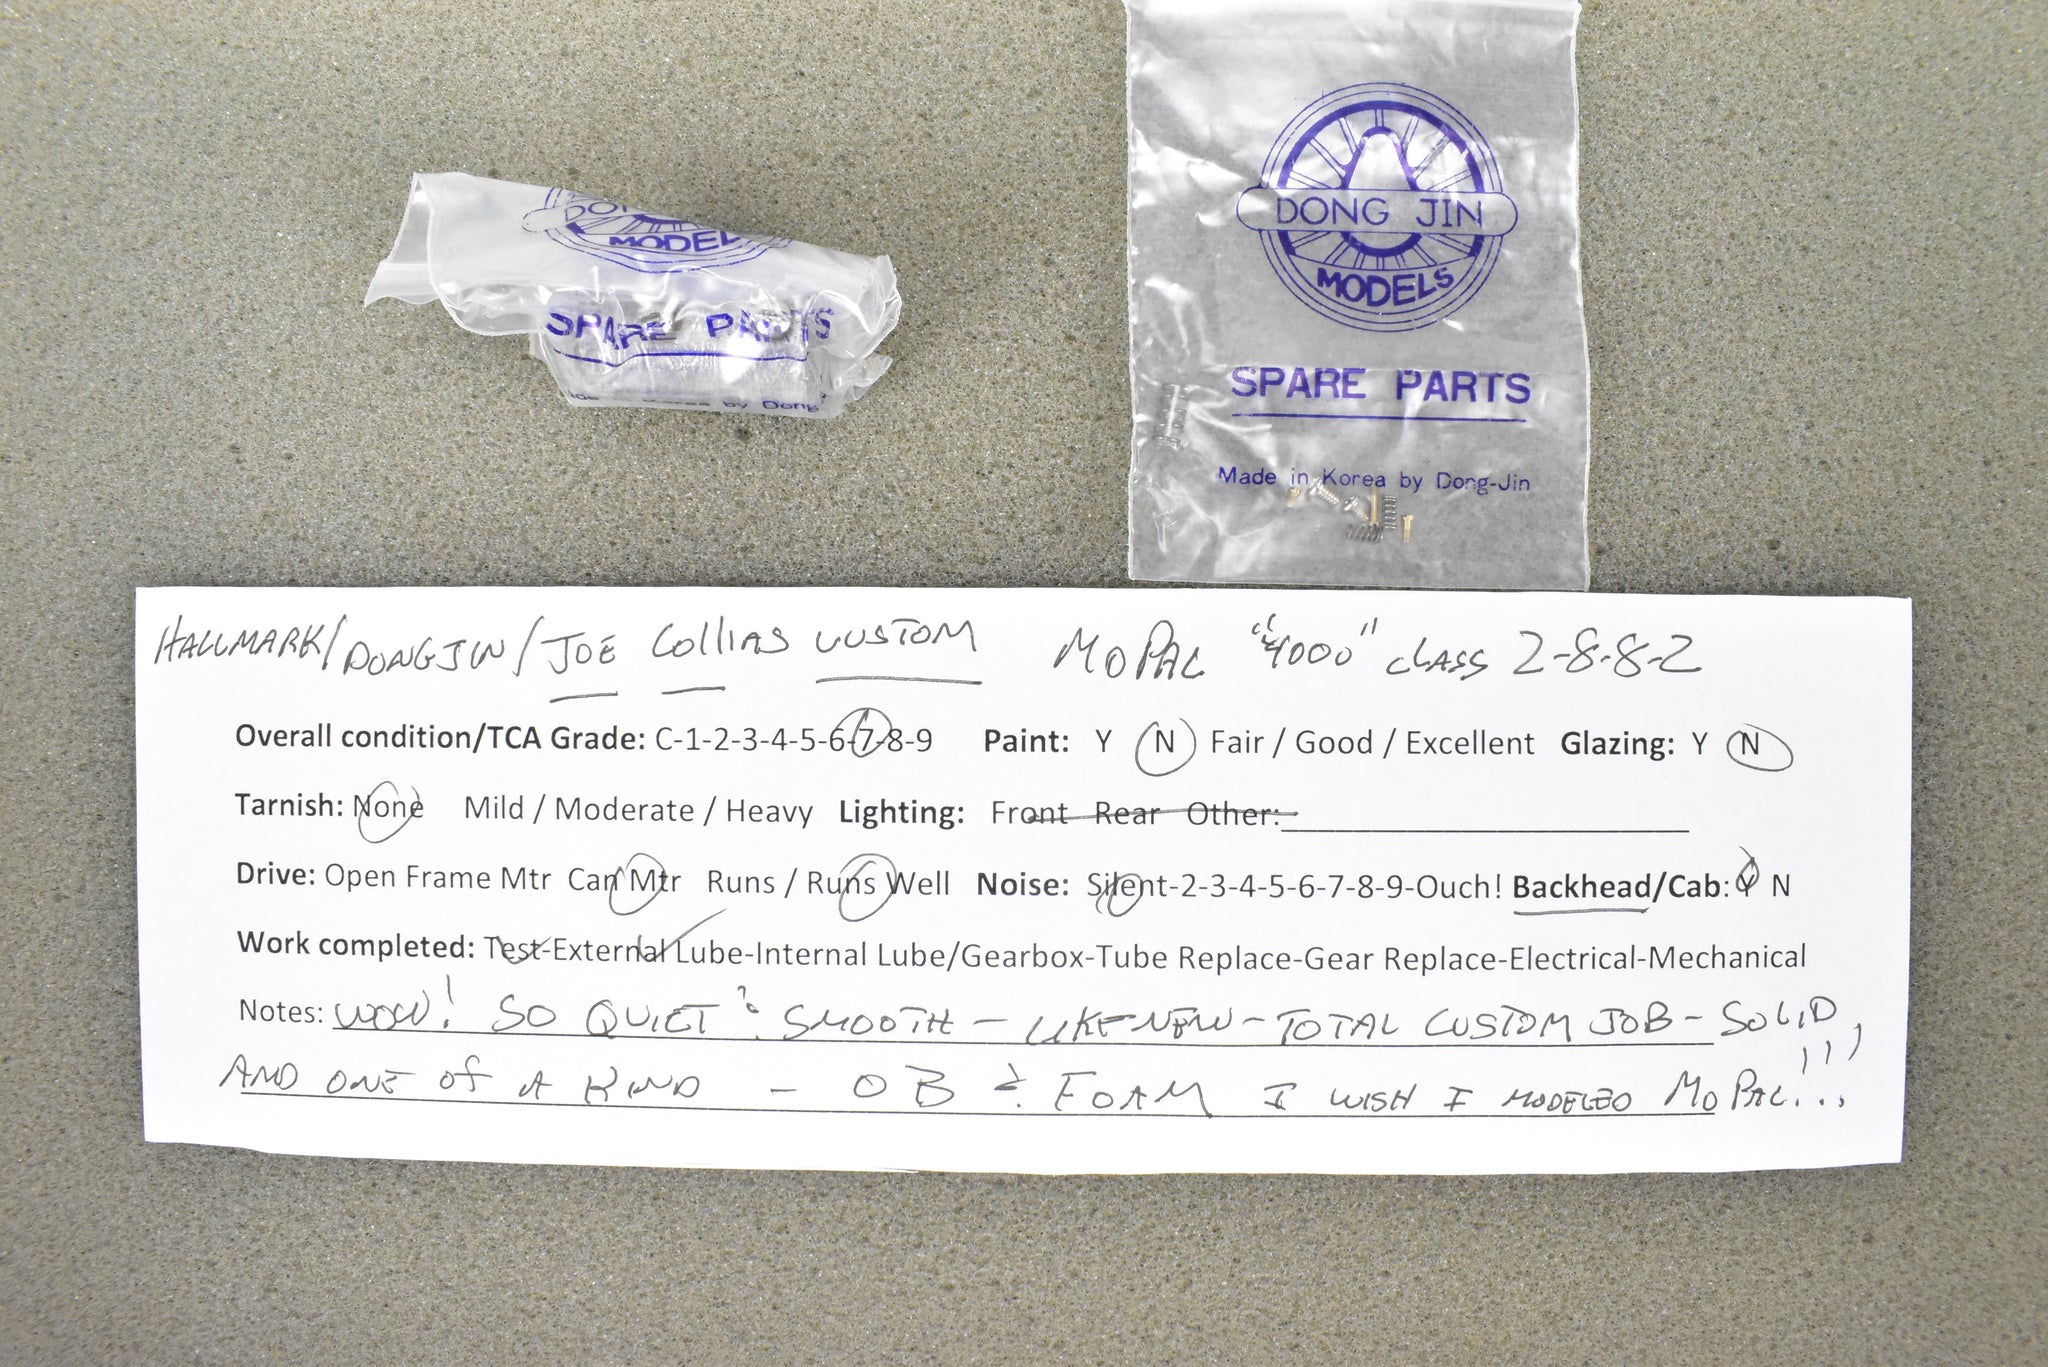 DONG
MODEL
SPARE PARTS
Korea by Dong
DONG JIN
MODELS
SPARE PARTS
Made in Korea by Dong-Jin
HALLMARK/DONGJIN/JOE COLLIAS CUSTOM MOPAC "4000" CLASS 2-8-8-2
Overall condition/TCA Grade: C-1-2-3-4-5-6-7-8-9 Paint: Y N Fair / Good / Excellent Glazing: Y N
Tarnish: None Mild / Moderate / Heavy Lighting: Front Rear Other:
Drive: Open Frame Mtr Can Mtr Runs / Runs Well Noise: Silent-2-3-4-5-6-7-8-9-Ouch! Backhead/Cab: Y N
Work completed: Test-External Lube-Internal Lube/Gearbox-Tube Replace-Gear Replace-Electrical-Mechanical
Notes: WOW! SO QUIET & SMOOTH - LIKE NEW - TOTAL CUSTOM JOB - SOLID,
AND ONE OF A KIND - OB & FOAM I WISH I MODELED MOPAC!!!